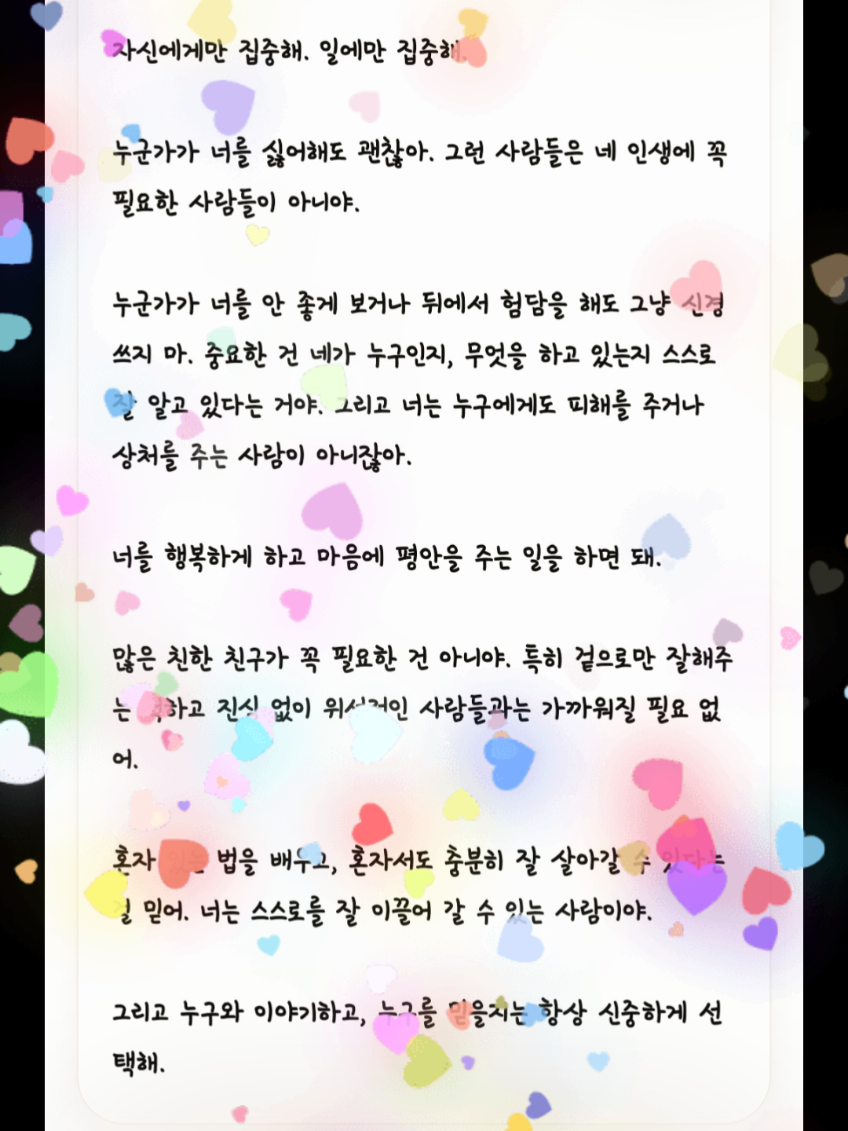 자신에게만 집중해. 일에만 집중해.
누군가가 너를 싫어해도 괜찮아. 그런 사람들은 네 인생에 꼭
필요한 사람들이 아니야.
누군가가 너를 안 좋게 보거나 뒤에서 험담을 해도 그냥 신경
쓰지 마. 중요한 건 네가 누구인지, 무엇을 하고 있는지 스스로
잘 알고 있다는 거야. 그리고 너는 누구에게도 피해를 주거나
상처를 주는 사람이 아니잖아.
너를 행복하게 하고 마음에 평안을 주는 일을 하면 돼.
많은 친한 친구가 꼭 필요한 건 아니야. 특히 겉으로만 잘해주
는 척하고 진심 없이 위선적인 사람들과는 가까워질 필요 없
어.
혼자 있는 법을 배우고, 혼자서도 충분히 잘 살아갈 수 있다는
걸 믿어. 너는 스스로를 잘 이끌어 갈 수 있는 사람이야.
그리고 누구와 이야기하고, 누구를 믿을지는 항상 신중하게 선
택해.